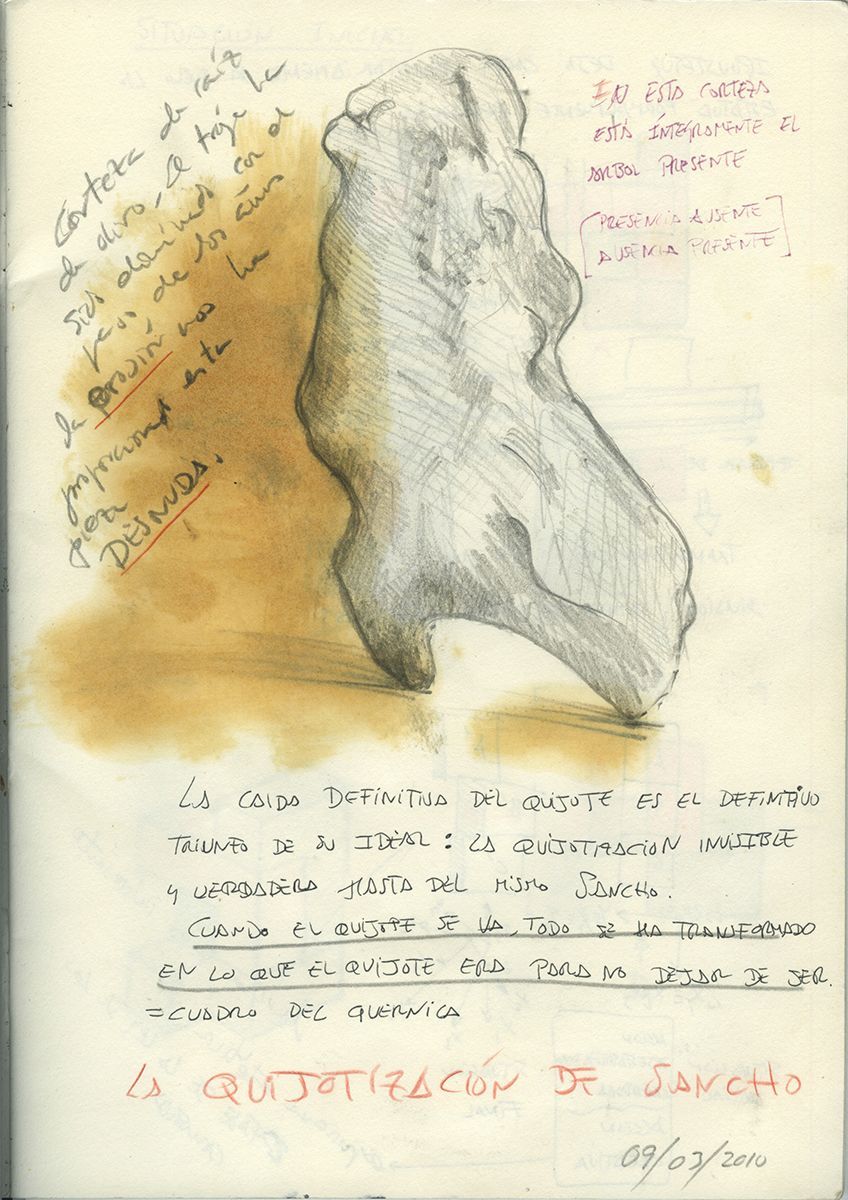 Corteza de raíz
de olivo, el traje ha
sido con el
peso de los años
la erosión nos ha
proporcionado esta
pieza
DESNUDA.
EN ESTA CORTEZA
ESTÁ ÍNTEGRAMENTE EL
ARBOL PRESENTE
[PRESENCIA AUSENTE
AUSENCIA PRESENTE]
LA CAIDA DEFINITIVA DEL QUIJOTE ES EL DEFINITIVO
TRIUNFO DE SU IDEAL: LA QUIJOTIZACION INVISIBLE
Y VERDADERA HASTA DEL MISMO SANCHO.
CUANDO EL QUIJOTE SE VA, TODO SE HA TRANSFORMADO
EN LO QUE EL QUIJOTE ERA PARA NO DEJAR DE SER.
=CUADRO DEL GUERNICA
LA QUIJOTIZACIÓN DE SANCHO
09/03/2010